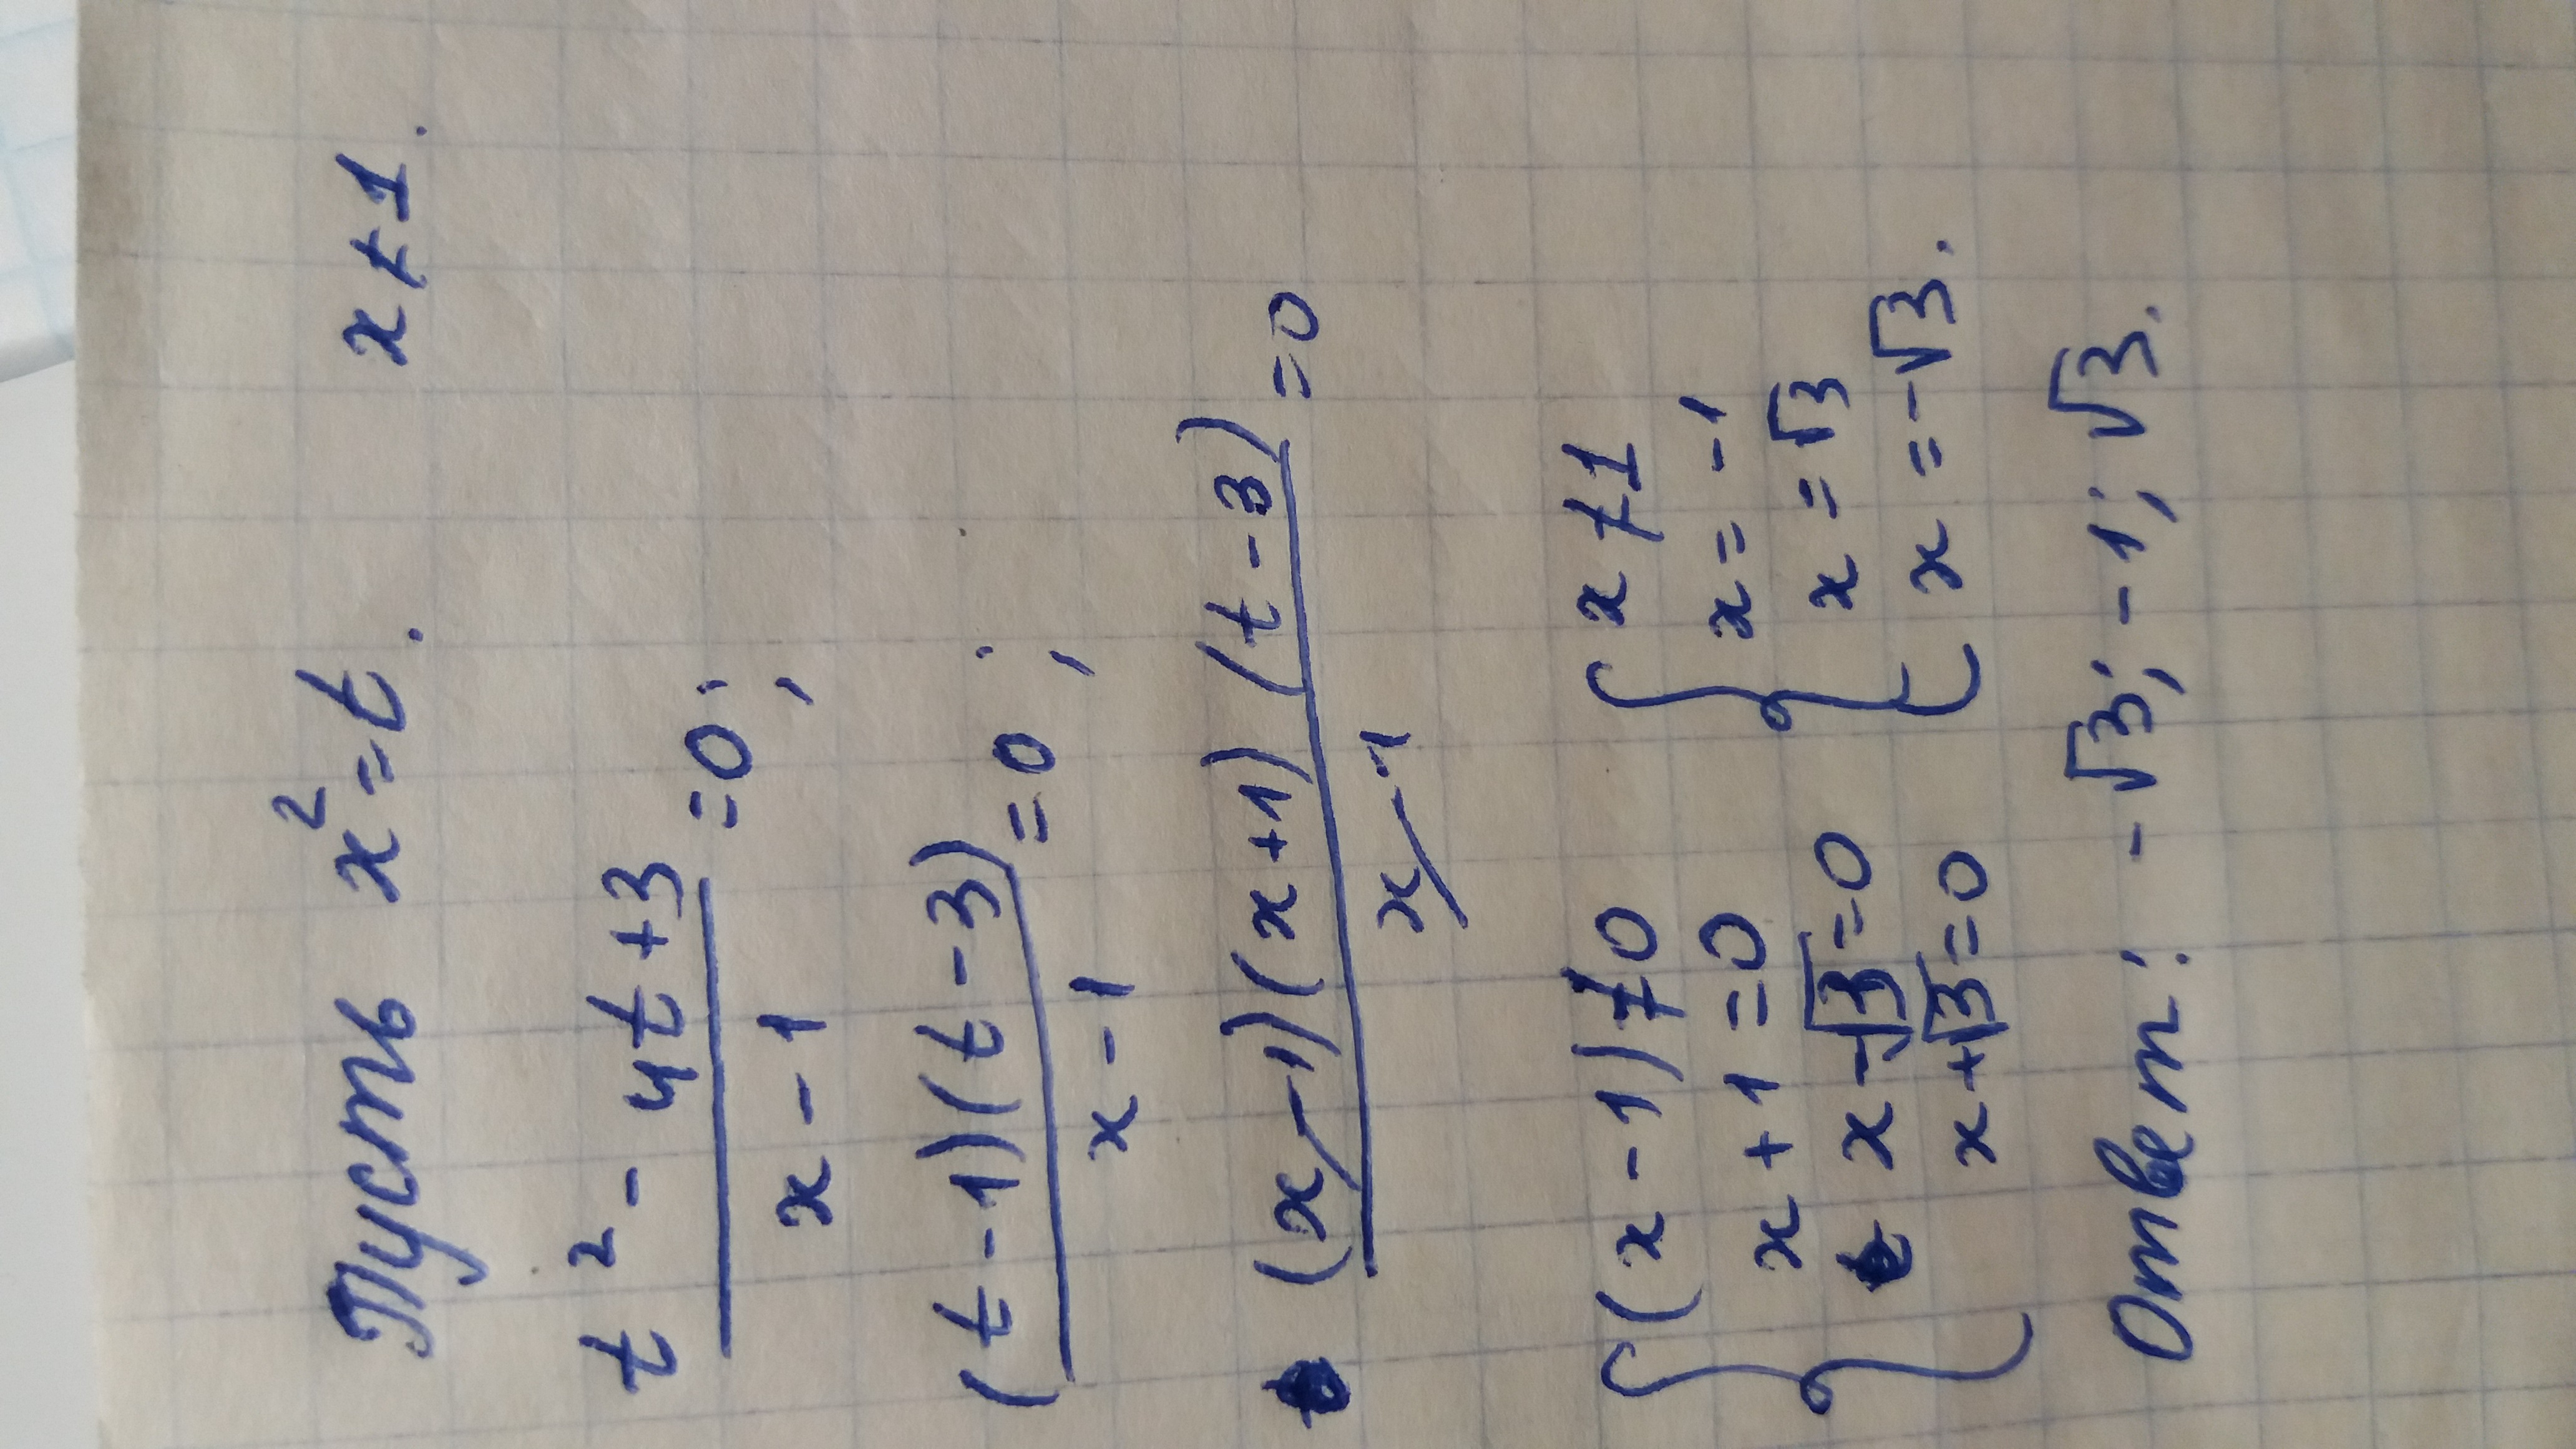 Пусть x²=t. x≠1.
t² - 4t+3 / x - 1 =0;
(t-1)(t-3) / x-1 =0;
(x-1)(x+1)(t-3) / x-1 =0
{ (x-1)≠0 { x≠1
x+1=0 x=-1
x-√3=0 x=√3
x+√3=0 x=-√3.
Ответ: -√3; -1; √3.